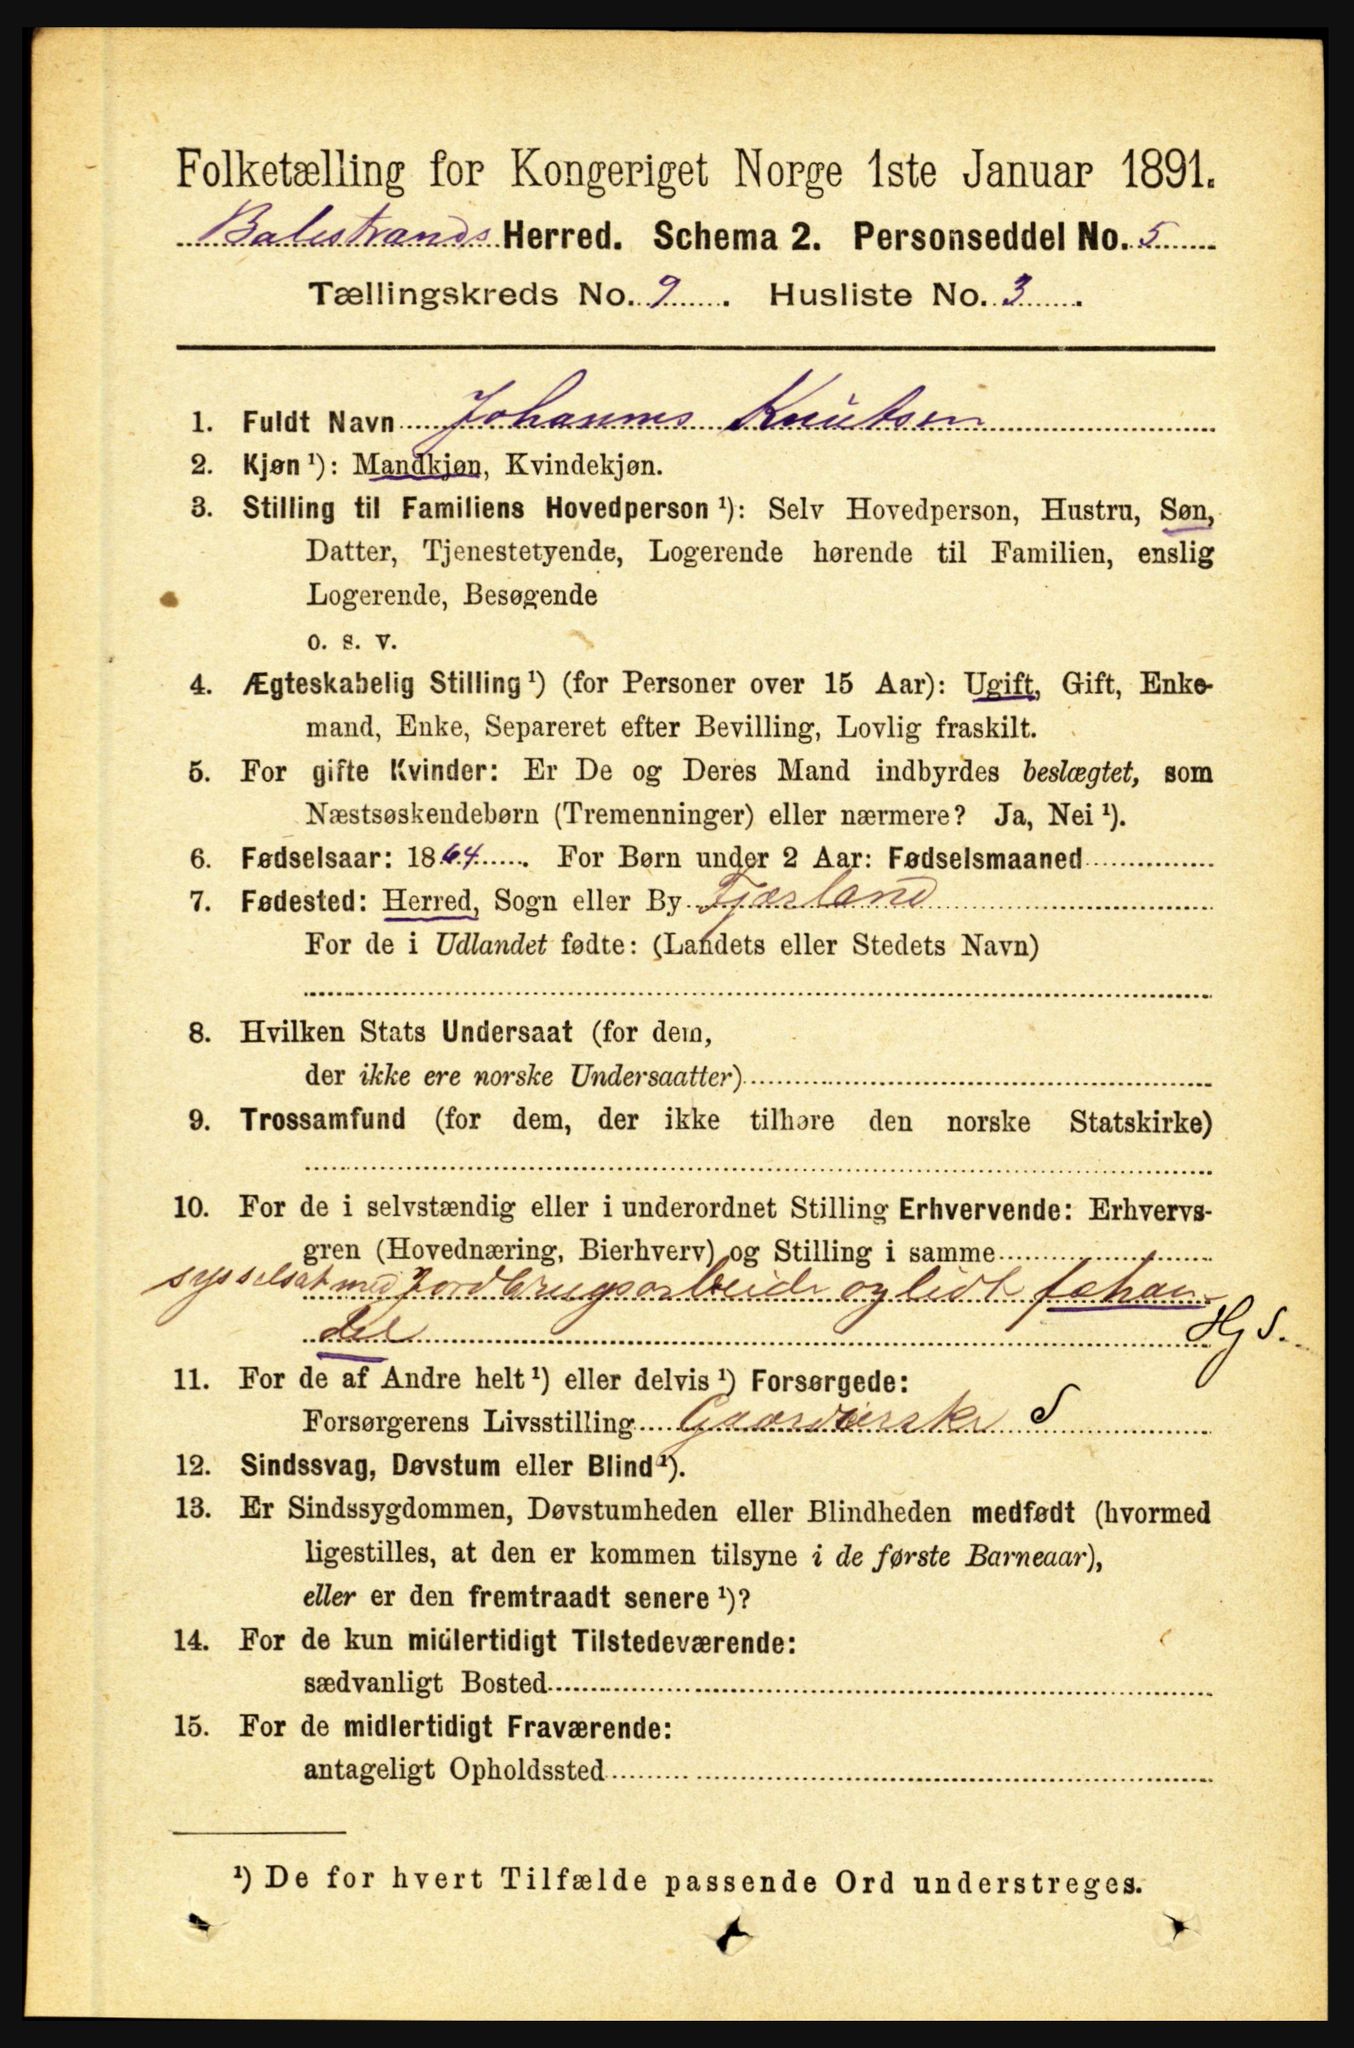 Folketælling for Kongeriget Norge 1ste Januar 1891.
Balestrands Herred. Schema 2. Personseddel No. 5
Tællingskreds No. 9. Husliste No. 3.
1. Fuldt Navn Johannes Knutsen
2. Kjøn ¹): Mandkjøn, Kvindekjøn.
3. Stilling til Familiens Hovedperson ¹): Selv Hovedperson, Hustru, Søn,
Datter, Tjenestetyende, Logerende hørende til Familien, enslig
Logerende, Besøgende
o. s. v.
4. Ægteskabelig Stilling ¹) (for Personer over 15 Aar): Ugift, Gift, Enke-
mand, Enke, Separeret efter Bevilling, Lovlig fraskilt.
5. For gifte Kvinder: Er De og Deres Mand indbyrdes beslægtet, som
Næstsøskendebørn (Tremenninger) eller nærmere? Ja, Nei ¹).
6. Fødselsaar: 1864. For Børn under 2 Aar: Fødselsmaaned
7. Fødested: Herred, Sogn eller By Fjærland
For de i Udlandet fødte: (Landets eller Stedets Navn)
8. Hvilken Stats Undersaat (for dem,
der ikke ere norske Undersaatter)
9. Trossamfund (for dem, der ikke tilhøre den norske Statskirke)
10. For de i selvstændig eller i underordnet Stilling Erhvervende: Erhvervs-
gren (Hovednæring, Bierhverv) og Stilling i samme
sysselsat med Jordbrugsarbeide og lidt fehan-
del Hg S.
11. For de af Andre helt ¹) eller delvis ¹) Forsørgede:
Forsørgerens Livsstilling S
12. Sindssvag, Døvstum eller Blind ¹).
13. Er Sindssygdommen, Døvstumheden eller Blindheden medfødt (hvormed
ligestilles, at den er kommen tilsyne i de første Barneaar),
eller er den fremtraadt senere ¹)?
14. For de kun midlertidigt Tilstedeværende:
sædvanligt Bosted
15. For de midlertidigt Fraværende:
antageligt Opholdssted
¹) De for hvert Tilfælde passende Ord understreges.